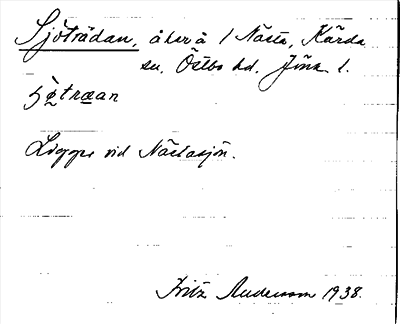 Sjöträdan, åker å 1 Nästa, Kärda
sn, Östbo hd. Jönk. l.
Ligger vid Nästasjön.
Fritz Andersson 1938.